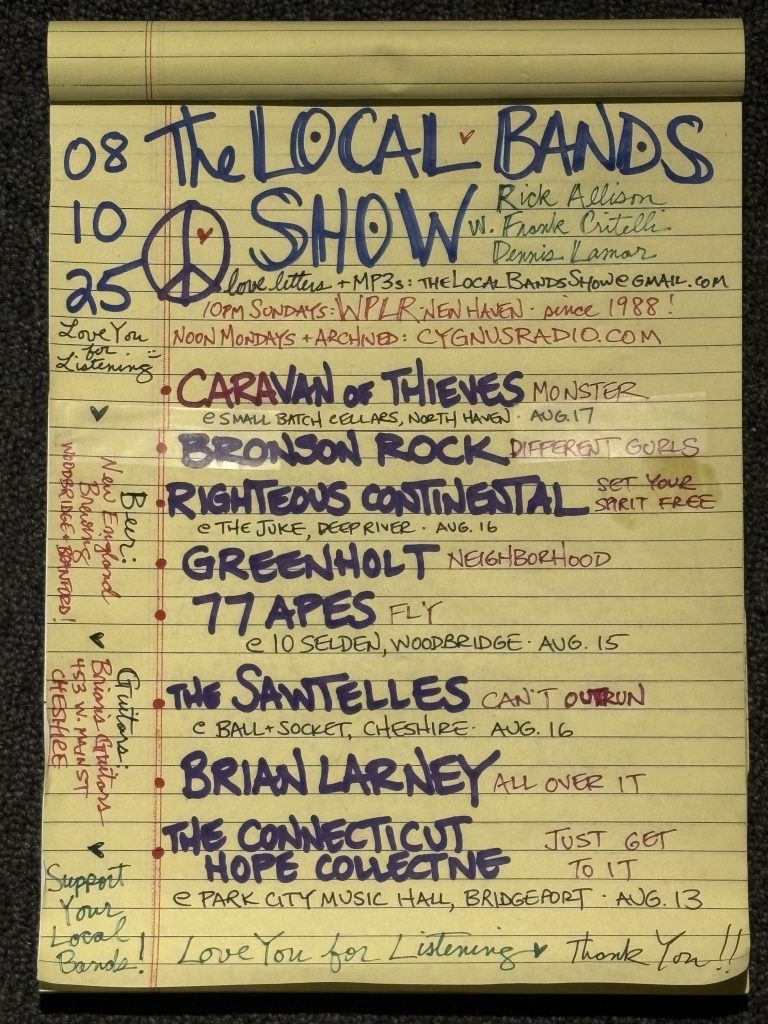 08
10
25
The LOCAL BANDS
SHOW
Rick Allison
w. Frank Critelli
Dennis Lamar
love letters + MP3s: THELOCALBANDSSHOW@GMAIL.COM
10PM SUNDAYS: WPLR NEW HAVEN · since 1988!
NOON MONDAYS + ARCHIVED: CYGNUSRADIO.COM
Love You
for
Listening
• CARAVAN OF THIEVES MONSTER
@ SMALL BATCH CELLARS, NORTH HAVEN · AUG. 17
• BRONSON ROCK DIFFERENT GURLS
• RIGHTEOUS CONTINENTAL SET YOUR
SPIRIT FREE
@ THE JUKE, DEEP RIVER · AUG. 16
• GREENHOLT NEIGHBORHOOD
• 77 APES FLY
@ 10 SELDEN, WOODBRIDGE · AUG. 15
• THE SAWTELLES CAN'T OUTRUN
@ BALL + SOCKET, CHESHIRE · AUG. 16
• BRIAN LARNEY ALL OVER IT
• THE CONNECTICUT
HOPE COLLECTIVE
JUST GET
TO IT
@ PARK CITY MUSIC HALL, BRIDGEPORT · AUG. 13
Beer:
New England
Brewing
WOODBRIDGE + BRANFORD!
Guitars:
Brian's Guitars
453 W. MAIN ST
CHESHIRE
Support
Your
Local
Bands!
Love You for Listening
Thank You!!